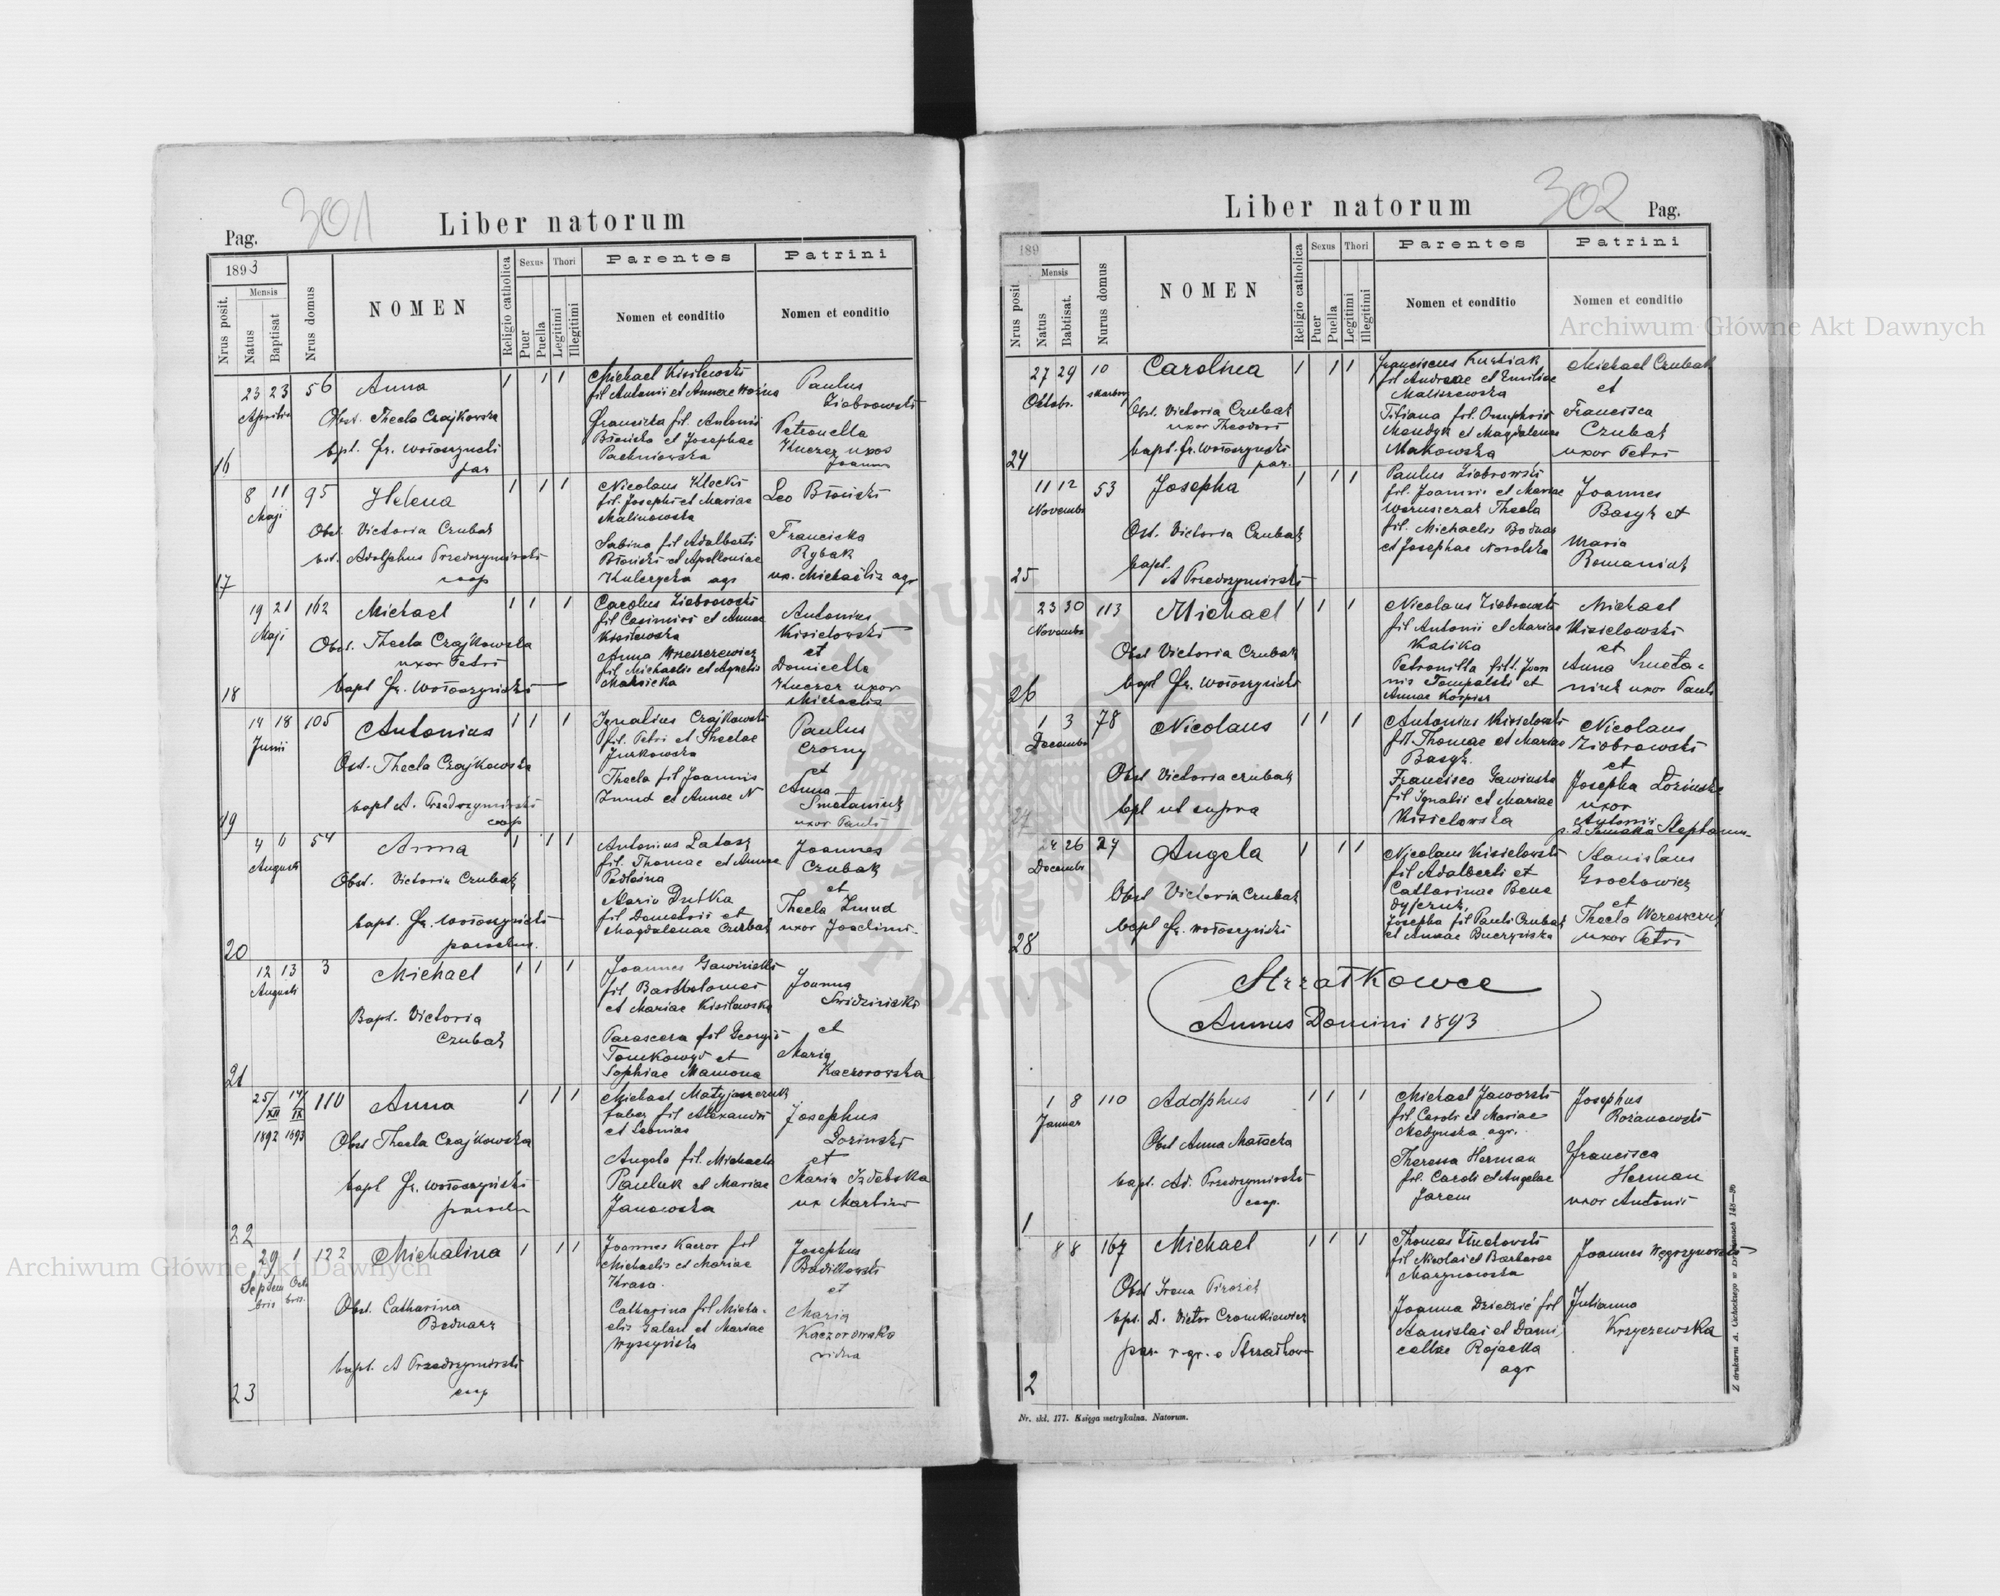 301
Pag.
Liber natorum
1893
Nrus posit.
Mensis
Natus
Baptisat
Nrus domus
NOMEN
Religio catholica
Sexus
Puer
Puella
Thori
Legitimi
Illegitimi
Parentes
Nomen et conditio
Patrini
Nomen et conditio
16
23 23
Aprilis
56
Anna
Obst. Thecla Czajkowska
bpt. fr. Wołoszynski
par
1 1 1
Michael Kisilewski
fil Antonii et Annae
Francisca fil. Antonii
Błoński et Josephae
Pachniowska
Paulus
Ziobrowski
Petronella
Kuczer uxor
Joannis
17
8 11
Maji
95
Helena
Obst. Victoria Czubak
bpt. Adolphus Przedrzymirski
coop
1 1 1
Nicolaus Klocki
fil. Josephi et Mariae
Malinowska
Sabina fil Adalberti
Błoński et Apolloniae
Kulczycka agr
Leo Błoński
Francisca
Rybak
ux. Michaelis agr
18
19 21
Maji
162
Michael
Obst. Thecla Czajkowska
uxor Petri
bapt fr. Wołoszynski
1 1 1
Carolus Ziobrowski
fil Casimiri et Annae
Kisilewska
Anna Wreszczewicz
fil Michaelis et Agnetis
Antonius
Kisielowski
et
Domicella
Kuczer uxor
Michaelis
19
14 18
Junii
105
Antonius
Ost. Thecla Czajkowska
bapt A. Przedrzymirski
coop
1 1 1
Ignatius Czajkowski
fil. Petri et Theclae
Jurkowska
Thecla fil Joannis
Zmud et Annae N
Paulus
Czorny
et
Anna
Smetaniuk
uxor Pauli
20
4 6
Augusti
54
Anna
Obst. Victoria Czubak
bapt. fr. Wołoszynski
parochus.
1 1 1
Antonius Łatasz
fil. Thomae et Annae
Podleśna
Maria Dutka
fil Demetrii et
Magdalenae Czubak
Joannes
Czubak
et
Thecla Zmud
uxor Joachimi
21
12 13
Augusti
3
Michael
Bapt. Victoria
Czubak
1 1 1
Joannes Gawiński
fil Bartholomei
et Mariae Kisilewska
Parascera fil Georgii
Tomkowyd et
Sophiae Mamona
Joanna
Swidziniski
et
Maria
Kaczorowska
22
25/XII 14/IX
1892 1893
110
Anna
Obst Thecla Czajkowska
bapt fr. Wołoszyński
paroch
1 1 1
Michael Matyjaszczuk
faber fil Alexandri
et Leonias
Angela fil. Michaelis
Pauluk et Mariae
Janowska
Josephus
Łoziński
et
Maria Izdebska
ux Martini
23
29 1
Septembris Octobris
122
Michalina
Obst. Catharina
Bednarz
bapt. A Przedrzymirski
coop
1 1 1
Joannes Kaczor fil
Michaelis et Mariae
Krasa.
Catharina fil Micha-
elis Galant et Mariae
Wyszyńska
Josephus
Badikowski
et
Maria
Kaczorowska
vidua
302
Liber natorum
Pag.
189
Nrus posit.
Mensis
Natus
Babtisat.
Nurus domus
NOMEN
Religio catholica
Sexus
Puer
Puella
Thori
Legitimi
Illegitimi
Parentes
Nomen et conditio
Patrini
Nomen et conditio
24
27 29
Oktobr.
10
Carolina
Obst. Victoria Czubak
uxor Theodori
bapt. fr. Wołoszynski
par.
1 1 1
Franciscus Kustiak
fil Andreae et Emiliae
Maliszewska
Titiana fil. Onuphrii
Mondyk et Magdalenae
Makowska
Michael Czubak
et
Francisca
Czubak
uxor Petri
25
11 12
Novembr
53
Josepha
Ost. Victoria Czubak
bapt.
A Przedrzymirski
1 1 1
Paulus Ziobrowski
fil. Joannis et Mariae
Wereszczak Thecla
fil. Michaelis Bodnar
et Josephae Norolska
Joannes
Basyk et
Maria
Romaniuk
26
23 30
Novembr
113
Michael
Obst Victoria Czubak
bapt fr. Wołoszynski
1 1 1
Nicolaus Ziobrowski
fil Antonii et Mariae
Kalika
Petronilla fill. Joan
nis Tompalski et
Annae Korpisz
Michael
Kisielowski
et
Anna Smeta-
niuk uxor Pauli
27
1 3
Decembr
78
Nicolaus
Obst Victoria Czubak
bpt ut supra
1 1 1
Antonius Kisielowski
fil Thomae et Mariae
Basyk.
Francisca Gawinska
fil Ignatii et Mariae
Kisielowska
Nicolaus
Ziobrowski
et
Josepha Łozinska
uxor
Antonii
28
24 26
Decembr
24
Angela
Obst Victoria Czubak
bapt fr. Wołoszynski
1 1 1
Nicolaus Kisielowski
fil Adalberti et
Catharinae Bene
dyszuk,
Josepha fil Pauli Czubak
et Annae Buczyńska
Stanislaus
Grochowicz
et
Thecla Wereszczuk
uxor Petri
Strzałkowce
Annus Domini 1893
1
1 8
Januar
110
Adolphus
Obst Anna Małocka
bapt. Ad. Przedrzymirski
coop.
1 1 1
Michael Jaworski
fil Caroli et Mariae
Medynska agr.
Theresa Herman
fil. Caroli et Angelae
Jarem
Josephus
Rożanowski
Francisca
Herman
uxor Antonii
2
8 8
167
Michael
Obst Irena Pirożek
bpt. D. Victor Cromkiewicz
par. r. gr. e Strzałkow
1 1 1
Thomas
fil Nicolai et Barbarae
Marynowska
Joanna Dziedzic fil
Stanislai et Domi
cellae Rojecka
agr
Joannes Węgrzynowski
Julianna
Krzyczewska
Nr. skl. 177. Księga metrykalna. Natorum.
Archiwum Główne Akt Dawnych
Archiwum Główne Akt Dawnych